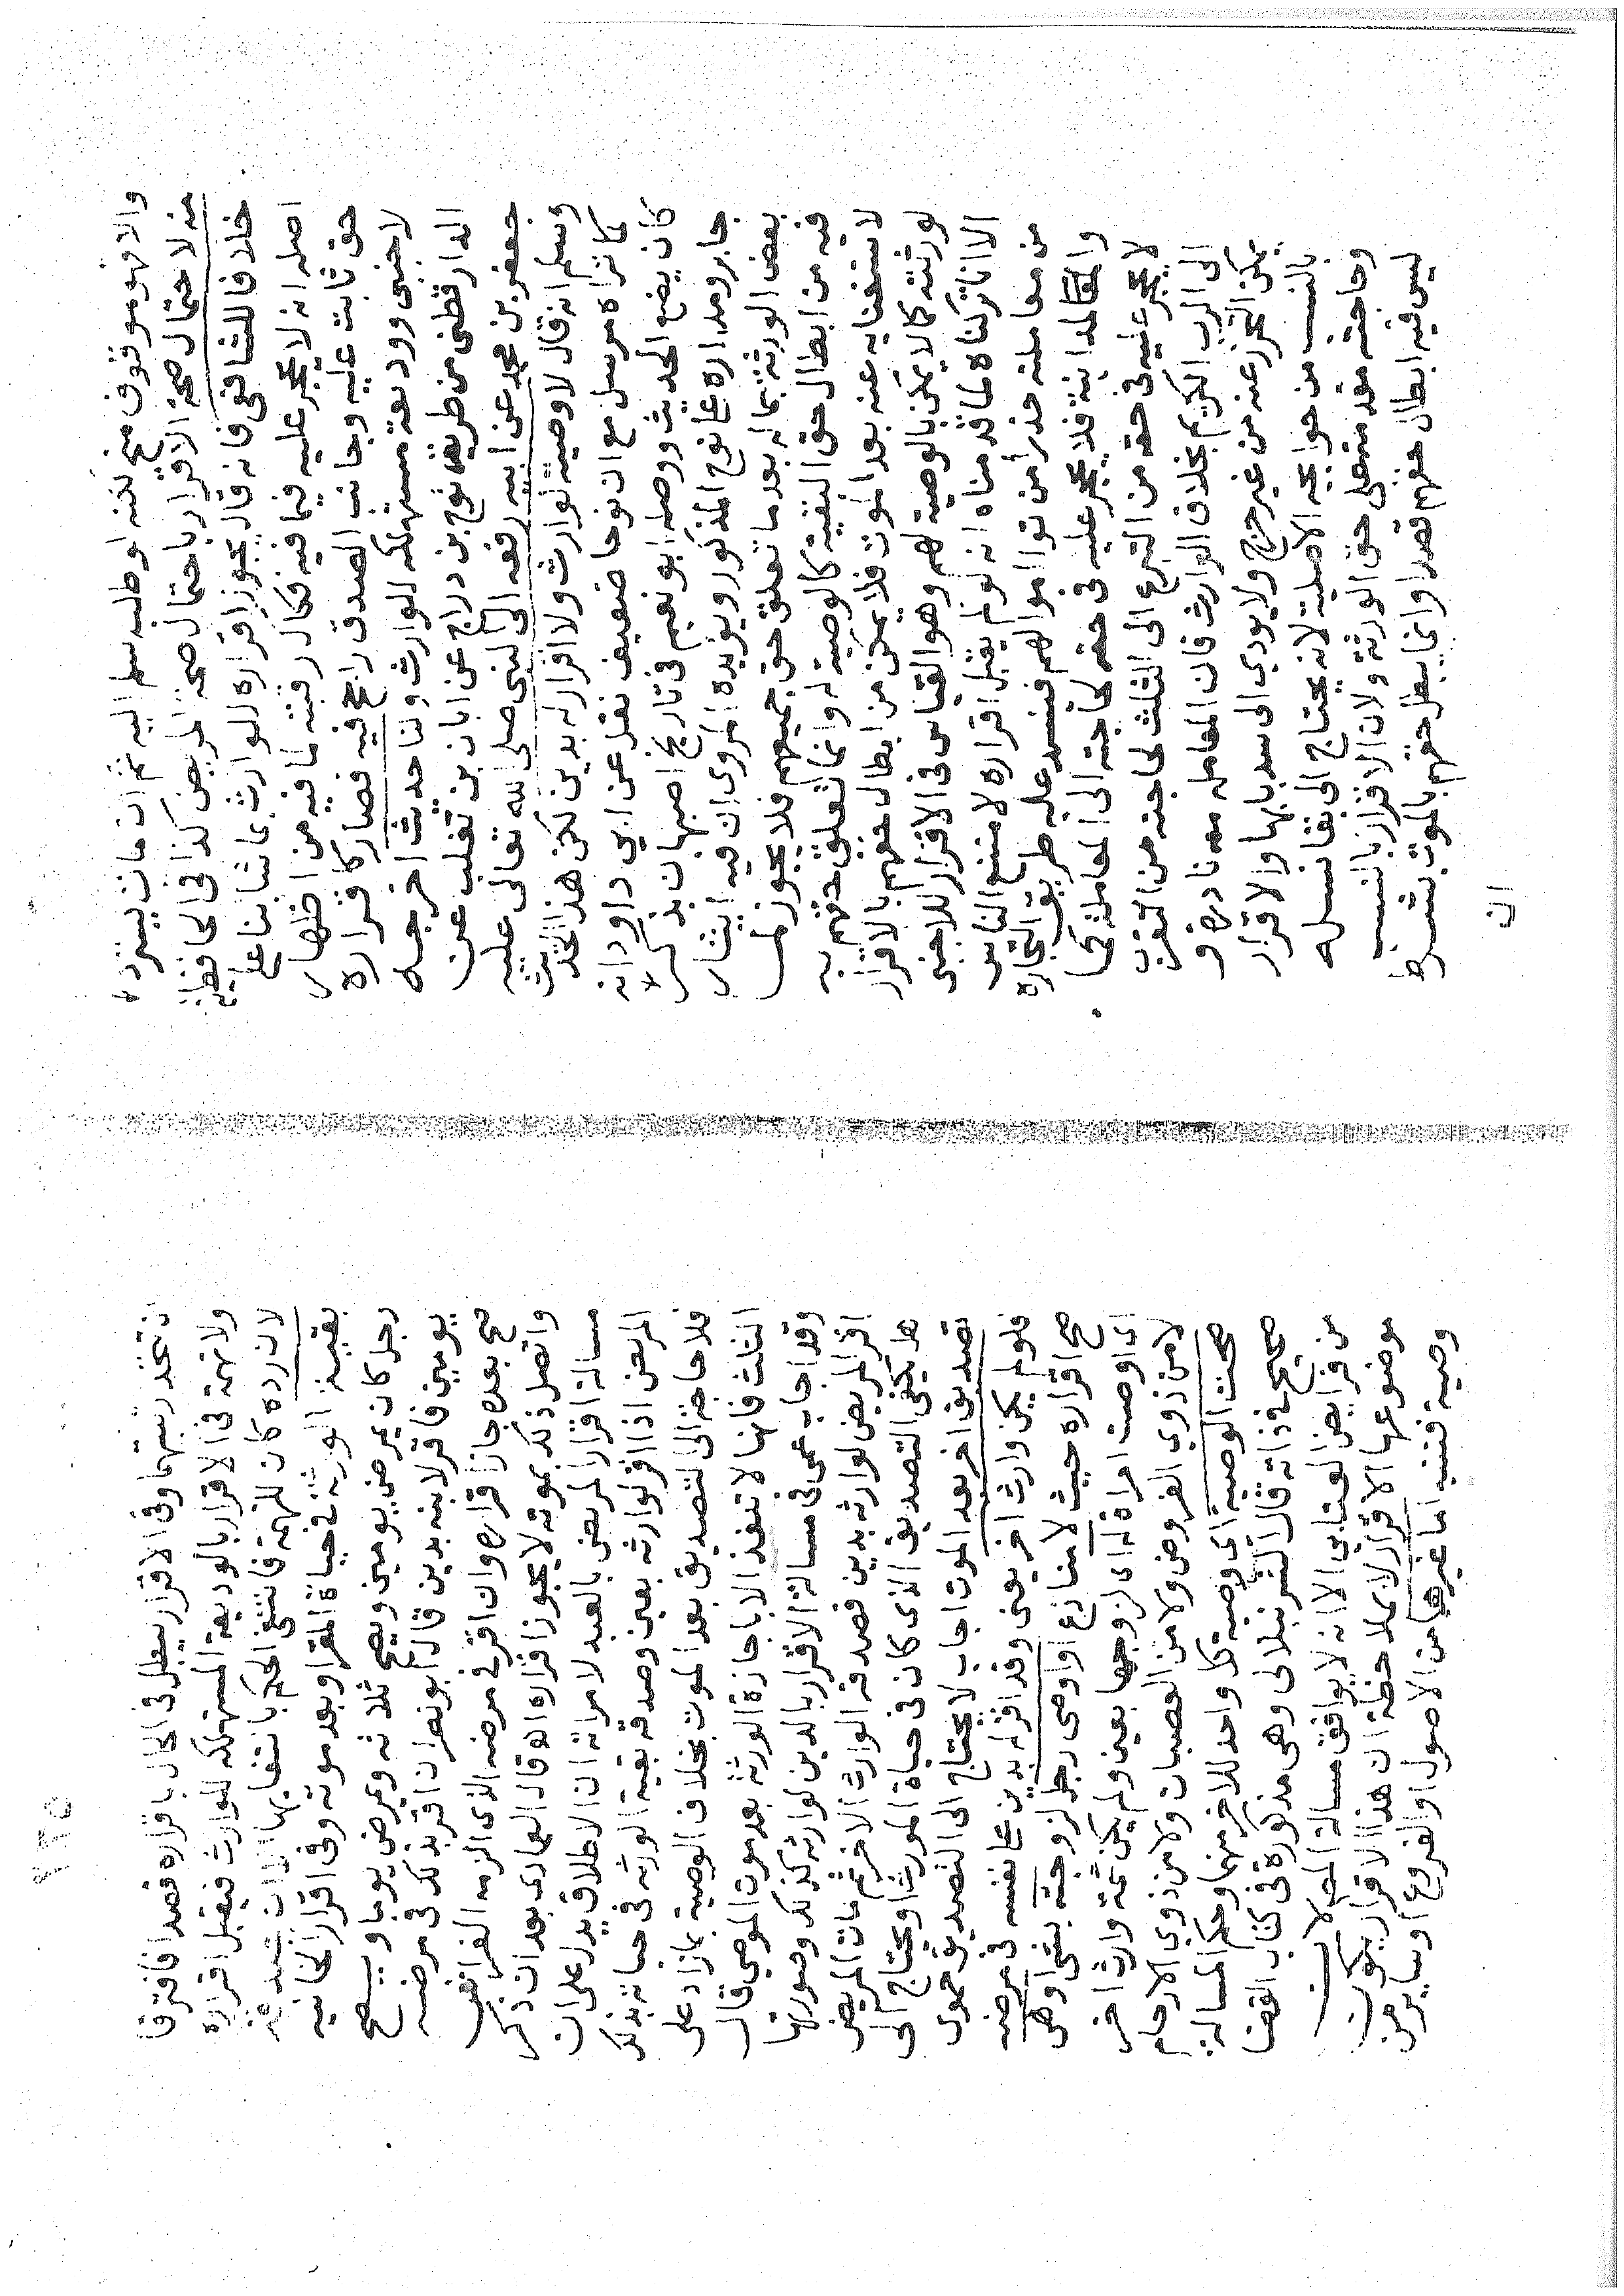 والا فهو موقوف منح لكنه لو طلب سلم اليه ثم ان مات يرد
منه لاحتمال صحة الاقرار باحتمال صحة المريض كذا فى الحافظية
خلافا للشافعى فانه قال يجوز اقراره للوارث بما شا بنا على
اصله انه لا يحجر عليه فيما فيه فكاك رقبته لما فيه من اظهار
حق ثابت عليه وجانب الصدق راجح فيه فصار كاقراره
لاجنبى وبوديعة مستهلكه للوارث ولنا حديث اخرجه
الدارقطنى من طريق نوح بن دراج عن ابان بن تغلب عن
جعفر بن محمد عن ابيه رفعه الى النبى صلى الله تعالى عليه
وسلم انه قال لا وصية لوارث ولا اقرار له بدين لكن هذا الحديث
كما تراه مرسل مع ان نوحا ضعيف نقل عن ابى داود انه
كان يضع الحديث ووصله ابو نعيم فى تاريخ اصبهان بذكر
جابر ومداره على نوح المذكور ويؤيده المروى ان فيه ايثار
بعض الورثة بماله بعد ما تعلق حق جميعهم فلا يجوز لما
فيه من ابطال حق البقية كالوصية له وانما تعلق حقهم به
لاستغنايه عنه بعد الموت فلا يمكن من ابطال حقهم بالاقرار
لورثته كما لا يمكن بالوصية لهم وهو القياس فى الاقرار للاجنبى
الا انا تركناه لما قدمناه انه لو لم يقبل اقراره لامتنع الناس
من معاملته حذرا من توا اموالهم فينسد عليه طريق التجاره
والمداينة فلا يحجر عليه فى حقه لحاجته الى المعاملة كما
لا يحجر عليه فى حقه من التبرع الى الثلث لحاجته من التقرب
الى الرب الكريم بخلاف الوارث فان المعامله معه نادره و
يمكن التحرز عنه من غير حرج ولا يودى الى سد بابها والاقرار
بالنسب من حوايجه الاصلية لانه يحتاج الى بقا نسله
وحاجته مقدمة على حق الورثة ولان الاقرار بالنسب
ليس فيه ابطال حقهم قصدا وانما يبطل حقهم بالموت بشرط
ان
٢٢٥
تتحد رتبتهما وفى الاقرار يبطل فى الحال باقراره قصدا فافترقا
ولا تهمة فى الاقرار بالوديعة المستهلكه للوارث فيقبل اقراره
لان رده كان للتهمة فانتفى الحكم بانتفايها الا ان يصدقه
بقية الورثة فى حياة المقر او بعد موته وفى اقرار الخانيه
رجل كان يمرض يومين ويصح ثلاثه ويمرض يوما ويصح
يومين فاقر لابنه بدين قال ابو نصر ان اقر بذلك فى مرضه
صح بعده جاز اقراره وان اقر فى مرضه الذى الزمه الفراش
واتصل ذلك بموته لا يجوز اقراره اه قال العمادى بعد ان ذكر
مسالة اقرار المريض بالعبد لامراته ان الاطلاق يدل على ان
المريض اذا اقر لوارثه بعين وصدقه بقية الورثه فى حياته بذلك
فلا حاجة الى التصديق بعد الموت بخلاف الوصية بما زاد على
الثلث فانها لا تنفذ الا باجازة الورثه بعد موت الموصى قال
وقد اجاب عمى فى مسالة الاقرار بالدين لوارثه كذلك وصورتها
اقر المريض لوارثه بدين فصدقه الوارث الاخر ثم مات المريض
هل يكفى التصديق الذى كان فى حياة المورث او يحتاج الى
تصديق اخر بعد الموت اجاب لا يحتاج الى التصديق حموى
فلو لم يكن وارث اخر يعنى وقد اقر له بدين على نفسه فى مرضه
صح اقراره حيث لا منازع او اوصى رجل لزوجته بشى او هى
اى او وصت امراة له اى لزوجها بعين ولم يكن ثمة وارث اخر
لا من ذوى الفروض ولا من العصبات ولا من ذوى الارحام
صحت الوصية اى وصية كل واحد للاخر منهما وحكم المسالة
صحيح فى ذاته قال الشرنبلالى وهى مذكورة فى كتاب القضا
من فرايض العتابى الا انه لا يوافق مسالة المحل لان
موضوعها الاقرار لا بملاحظة ان هذا الاقرار يكون
وصية فتنبه اما غيرهما من الاصول او الفروع او ساير من